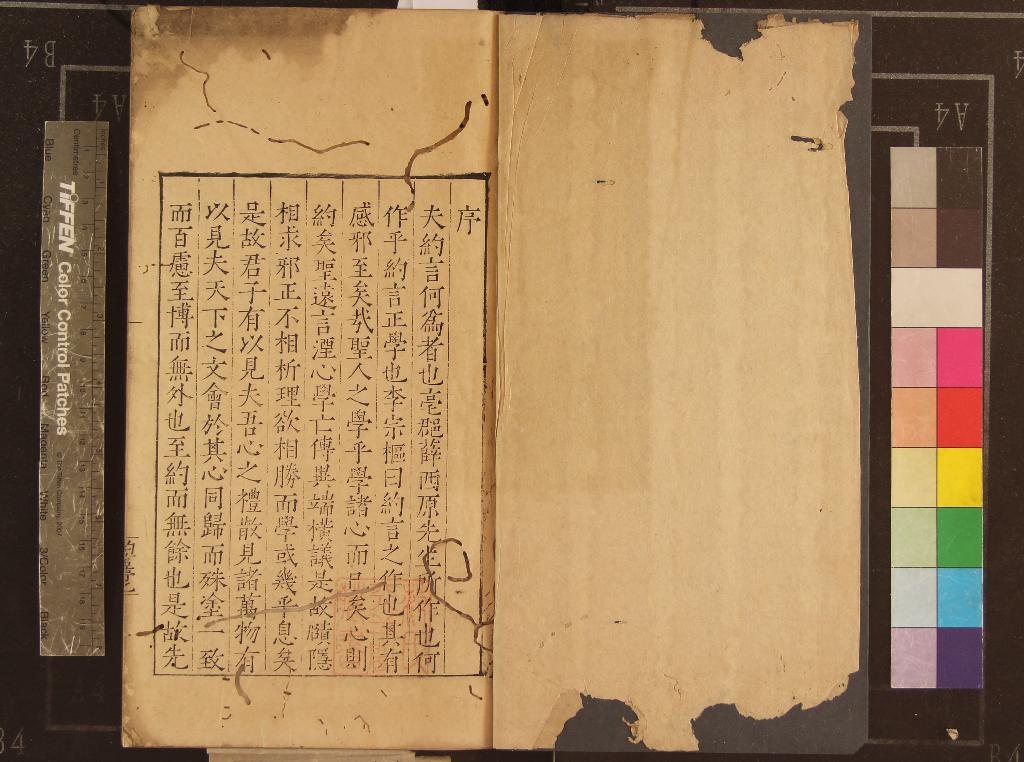 序
夫約言何爲者也亳郡薛西原先生所作也何
作乎約言正學也李宗樞曰約言之作也其有
感邪至矣哉聖人之學乎學諸心而已矣心則
約矣聖遠言湮心學亡傳異端橫議是故賾隱
相求邪正不相析理欲相勝而學或幾乎息矣
是故君子有以見夫吾心之禮散見諸萬物有
以見夫天下之文會於其心同歸而殊塗一致
而百慮至博而無外也至約而無餘也是故先
TIFFEN Color Control Patches
© The Tiffen Company, 2007
Centimetres
Inches
Blue
Cyan
Green
Yellow
Red
Magenta
White
3/Color
Black
B4
A4
A4
A4
B4
B4